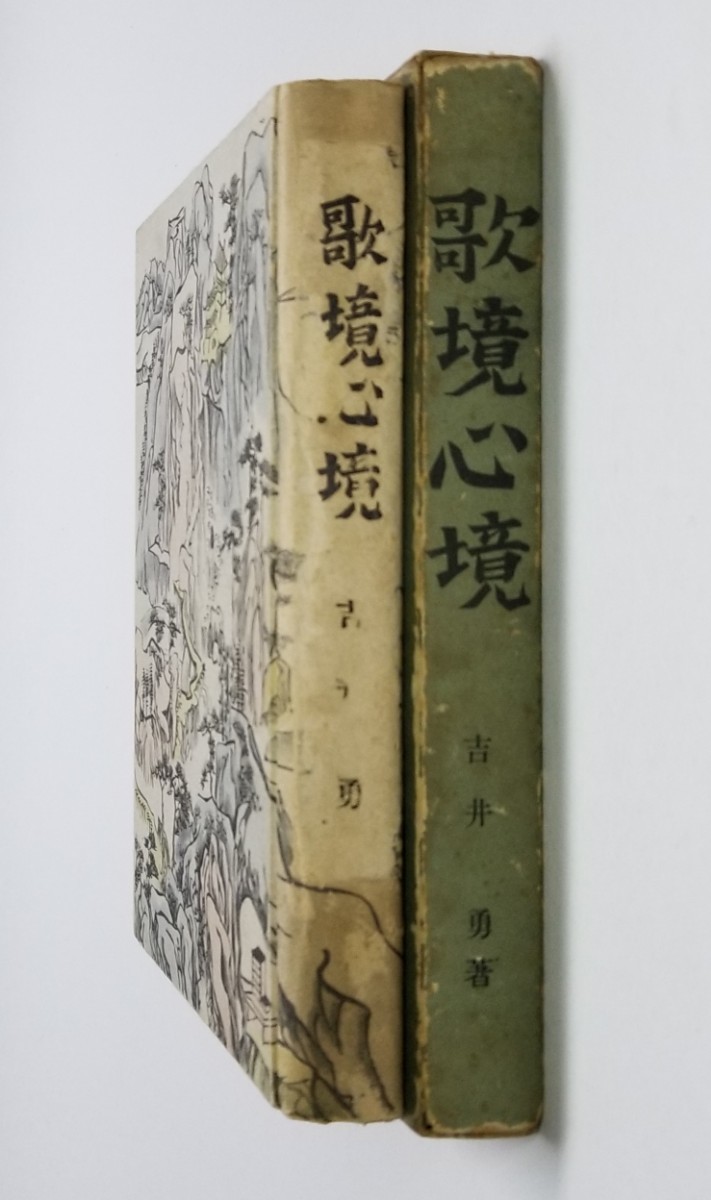 歌境心境
吉井 勇著
歌境心境
吉 勇